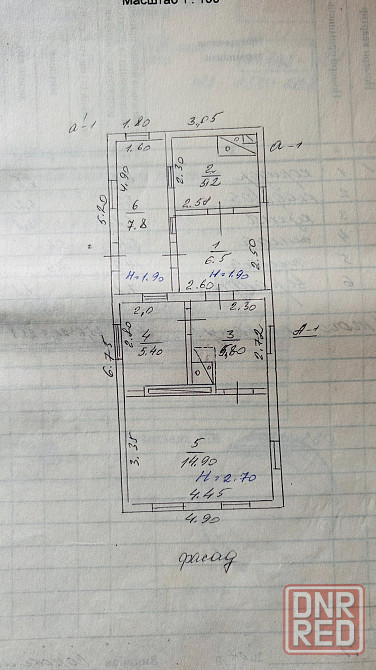 Масштаб 1:100
а'-1
1.80
3,05
а-1
1.60
4.90
2.30
2
5.2
5.20
6
7.8
2.50
1
6.5
2.50
Н=1.90
Н=1.90
2.60
2,0
2.30
2.70
4
5.40
3
5,80
2.72
А-1
6.75
3.35
5
14.90
Н=2.70
4.45
4.90
фасад
DNR
RED